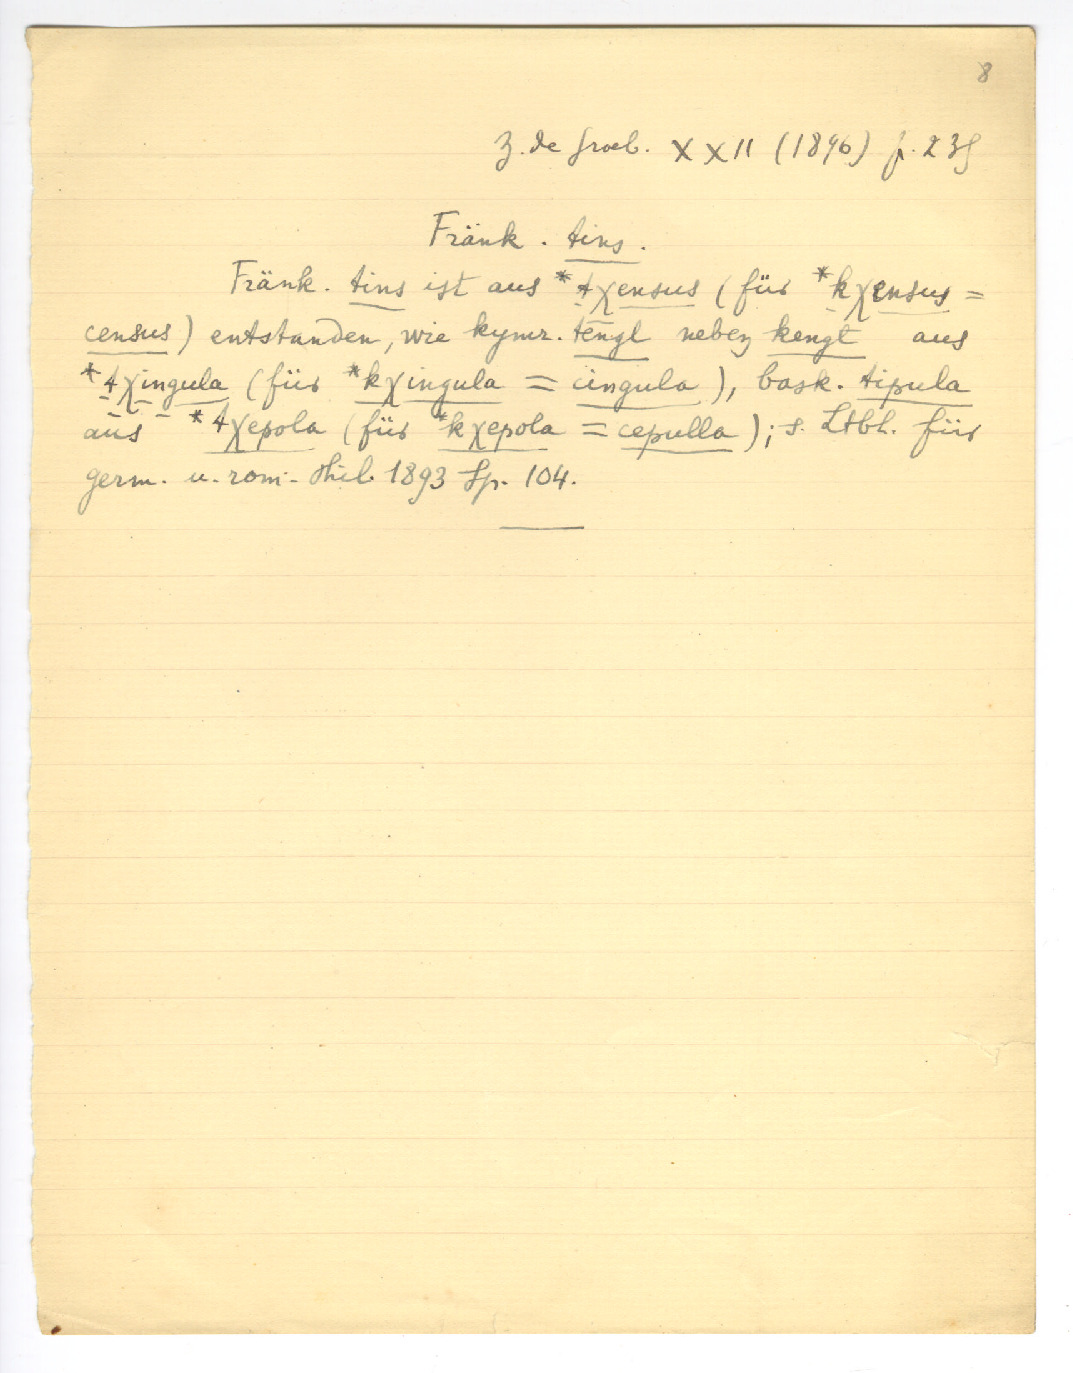 8
Z. de Groeb. XXII (1896) p. 239
Fränk. tins.
Fränk. tins ist aus *tχensus (für *kχensus =
census) entstanden, wie kymr. tengl neben kengl aus
*tχingula (für *kχingula = cingula), bask. tipula
aus *tχepola (für *kχepola = cepulla); s. Ltbl. für
germ. u. rom. Phil. 1893 Sp. 104.